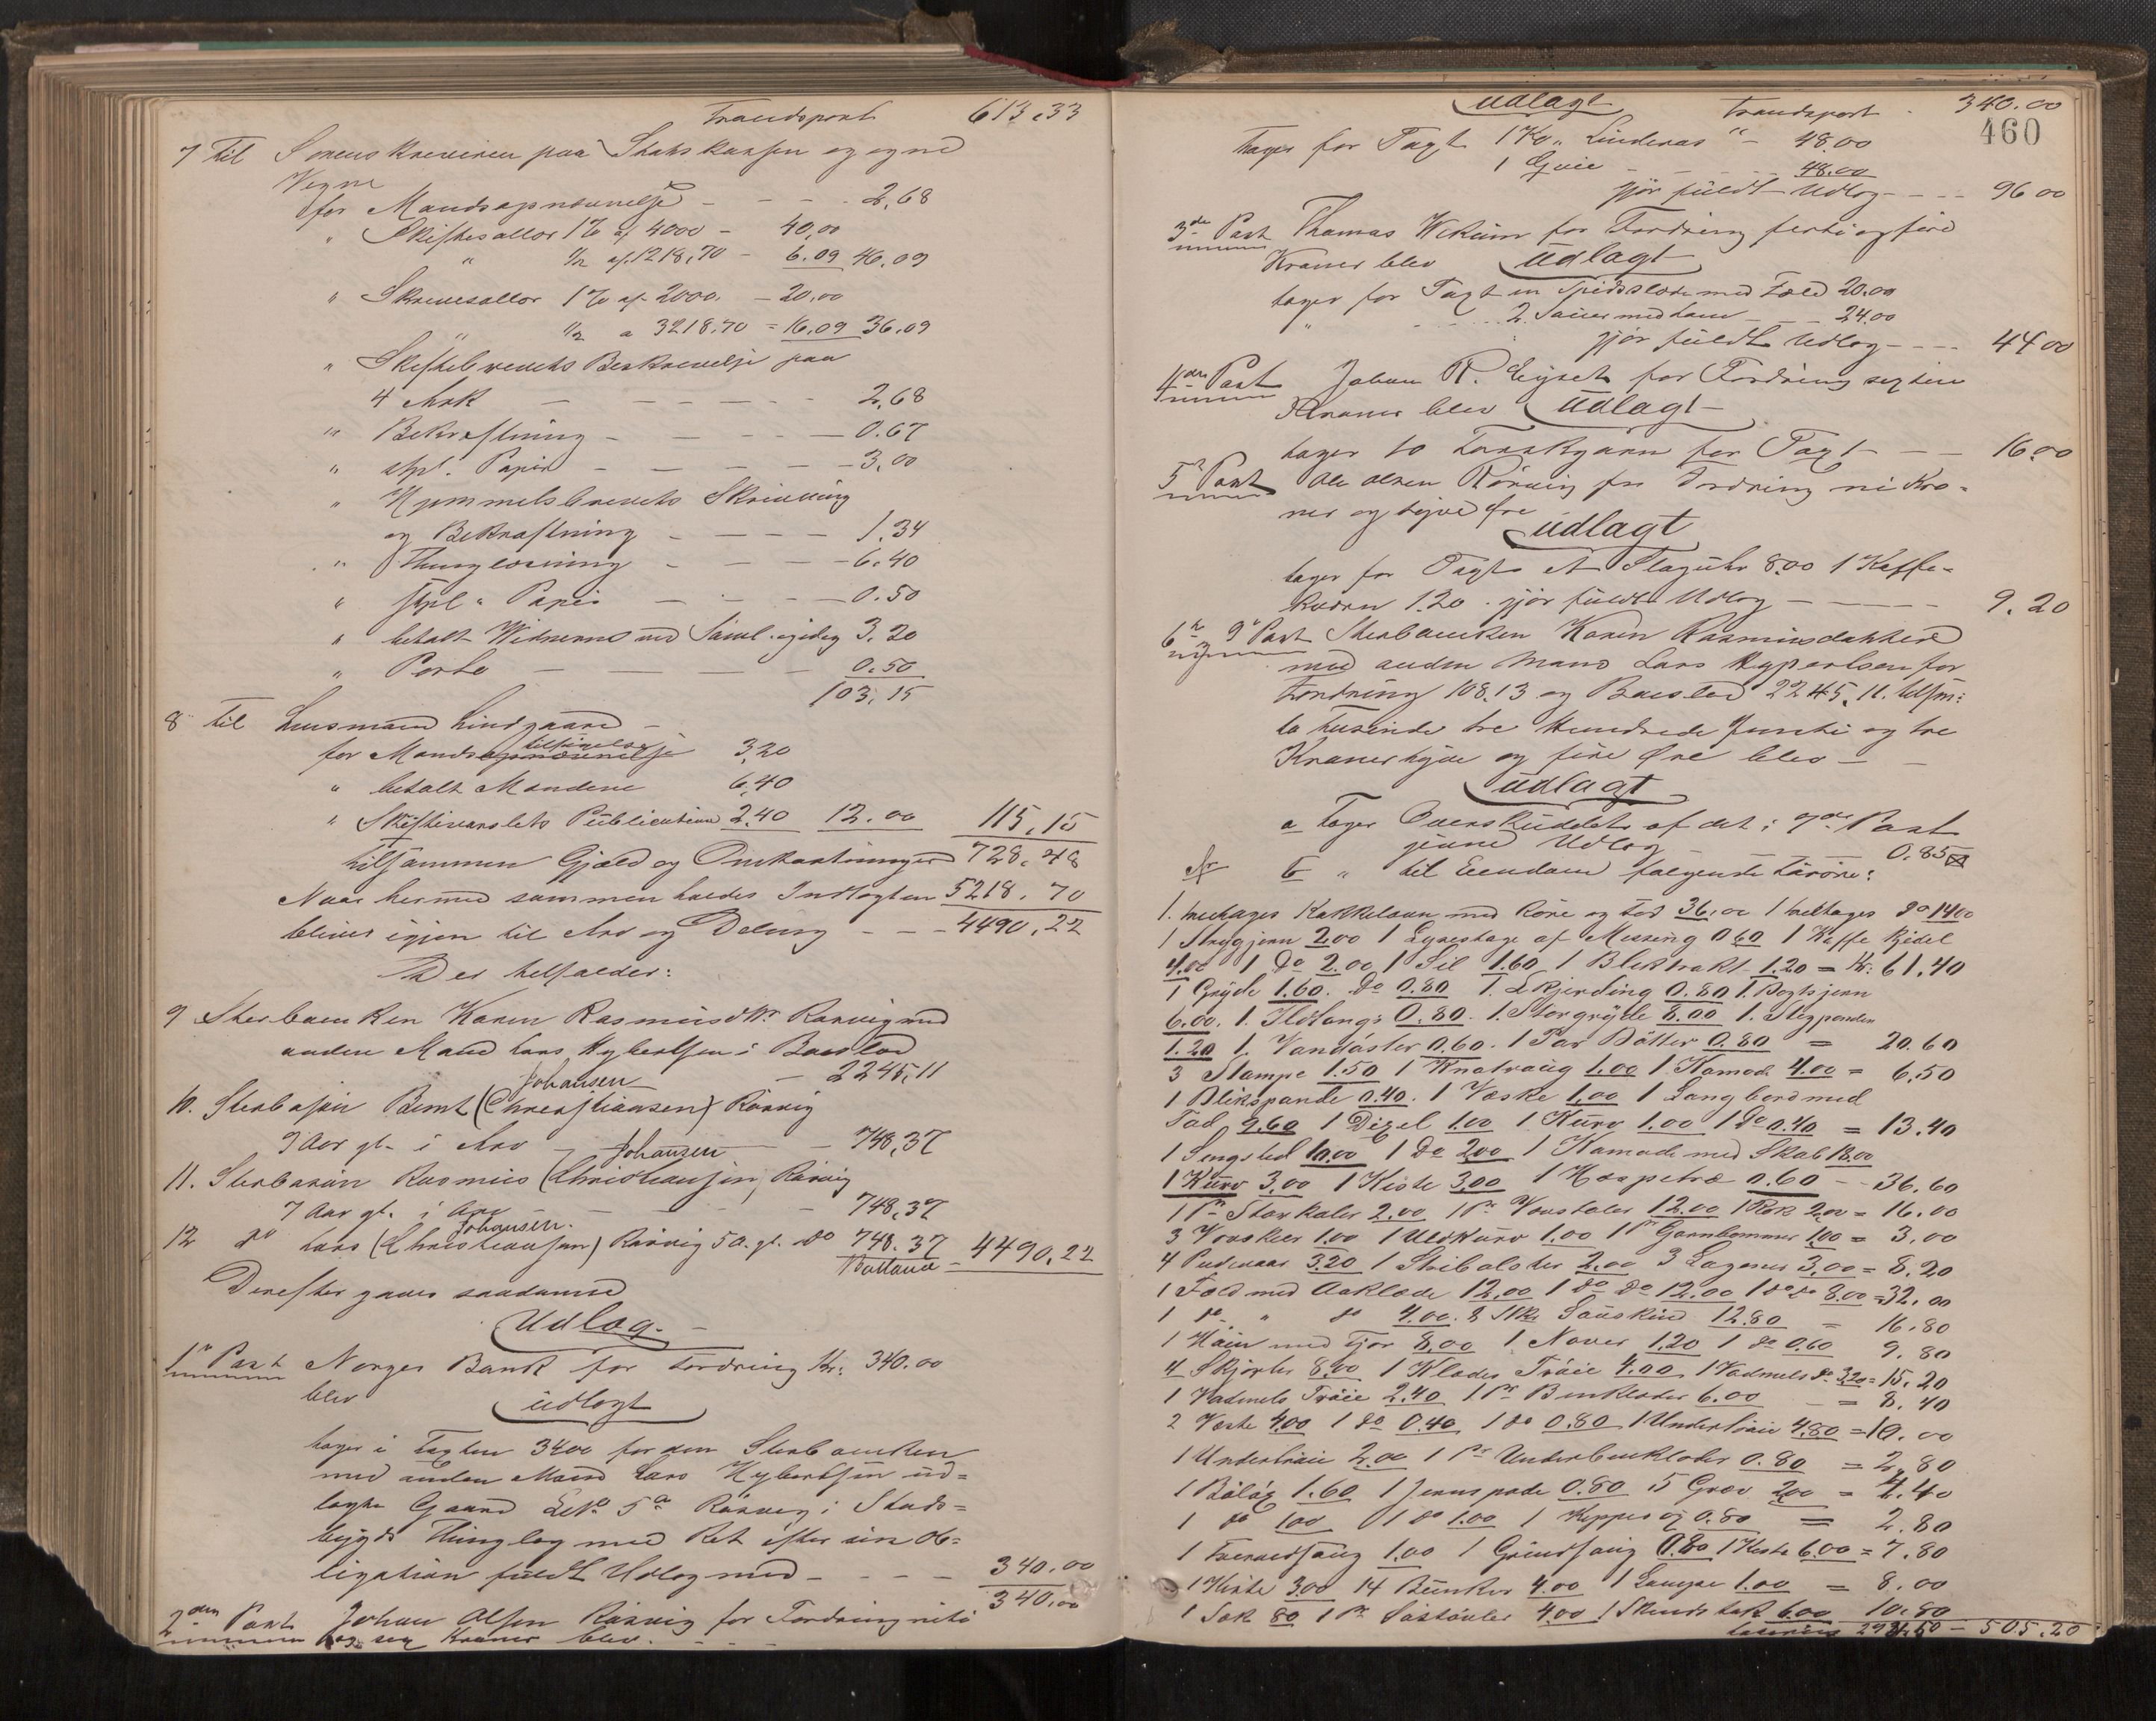 Transport 613,33
7 Til Sorenskriveren paa Statskassen og egne
Vegne
for Mandsopnævnelse - - - 2,68
" Skiftesallar 1% af 4000 - 40,00
" 1/2 af 1218,70 - 6.09 46,09
" Skrivesallar 1% af 2000. - 20,00
" 1/2 a 3218.70 = 16,09 36.09
" Skiftebrevets Beskrivelse paa
4 Ark - - - - - 2,68
" Bekræftning - - - - 0.67
" stpl. Papir - - - - 3,00
" Hjemmelsbrevets Skrivning
og Bekræftning - - - - 1.34
" Thinglæsning - - - - 6.40
" stpl. Papir - - - - 0.50
" betalt Vidnerne ved Saml. 3.20
" Porto - - - 0.50
103,15
8 Til Lensmand Lindgaard -
for Mandsopnævnelse tilsigelse 3,20
" betalt Mændene 6,40
" Skiftesamlets Publication 2,40 12.00 115,15
tilsammen Gjæld og Omkostninger 728,48
Naar hermed sammenholdes Indtægten 5218.70
bliver igjen til Arv og Deling - - - 4490,22
Der tilfalder:
9 Sterbœnken Karen Rasmusdtr Rørvig med
anden Mand Lars Hybertsen i Boeslod
- 2245,11
10. Sterbosøn Bernt (Christiansen) Johansen Rørvig
9 Aar gl. i Arv - - 748,37
11. Sterbosøn Rasmus (Christiansen) Johansen Rørvig
7 Aar gl. i Arv - - - 748,37
12 do Lars (Christiansen) Johansen. Rørvig 5 A. gl. do 748.37 4490,22
Ballance
Derefter gaves saadanne
Udlæg.
1ste Post Norges Bank for Fordring Kr: 340.00
blev udlagt
tager i Taxten 3400 for den Sterbœnken
med anden Mand Lars Hybertsen ud=
lagte Gaard LNo 5a Rørvig i Stads=
bygds Thinglag med Ret efter sin Ob=
ligation fuldt Udlæg med - - - - 340.00
340,00
2den Post Johan Olsen Rørvig for Fordring niti
og sex Kroner blev - - -
udlagt Transport - 340.00
460
tager for Taxt 1 Ko "Linderos" - 48.00
1 Qvie - - - 48.00
gjør fuldt Udlæg - - - - 96 00
3de Post Thomas for Fordring firti og fire
Kroner blev udlagt
tager for Taxt en Spidsslæde med Fæld 20.00
" 2 Sauer med Lam - - 24.00
gjør fuldt Udlæg - - - - 44 00
4de Post Johan R. for Fordring sexten
Kroner blev udlagt
tager 10 Torskgarn for Taxt - - - 16.00
5te Post Ole Olsen Rørvig for Fordring ni Kro-
ner og tyve Øre udlagt
tager for Taxt et Slaguhr 8.00 1 Kaffe-
kværn 1.20 gjør fuldt Udlæg - - - 9.20
6te og 9de Post Sterbœnken Karen Rasmusdatter
med anden Mand Lars Hybertsen for
Fordring 108.13 og Boeslod 2245,11. tilsm:
to tusinde tre Hundrede femti og tre
Kroner tyve og fire Øre blev -
udlagt
a tager Overskuddet af det i 7de Post
givne Udlæg 0.85
b " til Eiendom følgende Løsøre:
1. tretages Kakkelovn med Rør og Fod 36,00 1 tretages do 14.00
1 Strygjern 2.00 1 Lysestage af Messing 0.60 1 Kaffe Kjedel
4.00 1 do 2.00 1 Sil 1.60 1 Bliktrakt 1.20 = Kr: 61.40
1 Gryde 1.60. do 0.80 1. Skjerding 0.80 1. Bagtsjern
6.00. 1. Ildtang 0.80. 1. Storgryde 8.00 1. Stegpande
1.20 1. Vandøster 0.60. 1 Par Bøtter 0.80 = 20.60
3 Stampe 1.50 1 Knatraug 1.00 1. Komode 4.00 = 6.50
1 Blikspande 0.40. 1 Væske 1.00 1 Langbord med
Fod 9.60 1 Digel 1.00 1 Kurv 1.00 1 do 0.40 = 13.40
1 Sengsted 10.00 1 do 2.00 1 Komode med Skab 18.00
1 Kurv 3.00 1 Kiste 3.00 1 Haspetræ 0.60 - 36.60
1 Pr Storkaler 2.00 1 Pr 12.00 1 Rok 2.00 = 16.00
3 1.00 1 Uldkurv 1.00 1 Pr 1.00 = 3.00
4 Pudevaar 3.20 1 2.00 3 Lagener 3.00 = 8.20
1 Fæld med Aaklæde 12.00 1 do do 12.00 1 do do 8.00 = 32.00
1 do " do 4.00. 8 Stkr Sauskind 12.80 = 16.80
1 med Tjor 8.00 1 Naver 1.20 1 do 0.60 9.80
4 Skjorter 8.00 1 Klædes Trøie 4.00 1 Vadmels do 3.20 = 15.20
1 Vadmels Trøie 2.40 1 Pr Benklæder 6.00 = 8.40
2 Veste 4.00 1 do 0.40 1 do 0.80 1 Undertrøie 4.80 = 10.00
1 Undertrøie 2.00 1 Pr Underbenklæder 0.80 = 2.80
1 Buløx 1.60 1 Jernspade 0.80 5 Grev 2.00 = 4.40
1 do 1.00 1 do 1.00 1 0.80 = 2.80
1 1.00 1 0.80 1 Kiste 6.00 = 7.80
1 Kiste 3.00 14 4.00 1 Lampe 1.00 = 8.00
1 Sæk 80 1 Pr Søstøvler 4.00 1 6.00 10.80
505.20